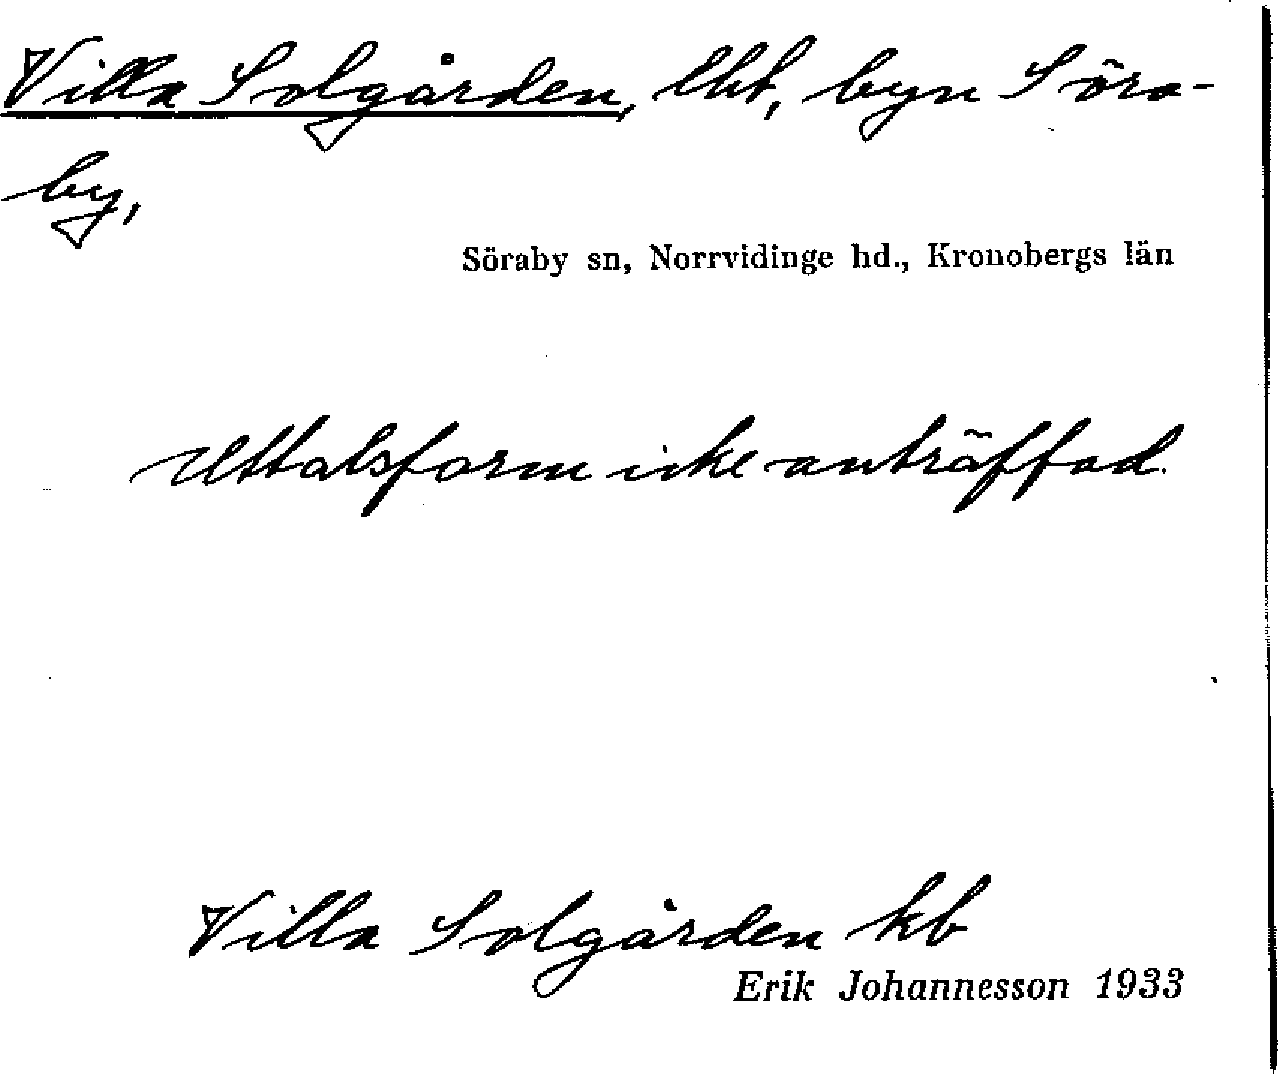 Villa Solgården, lht, byn Söra-
by,
Söraby sn, Norrvidinge hd., Kronobergs län
Uttalsform icke anträffad.
Villa Solgården kb
Erik Johannesson 1933